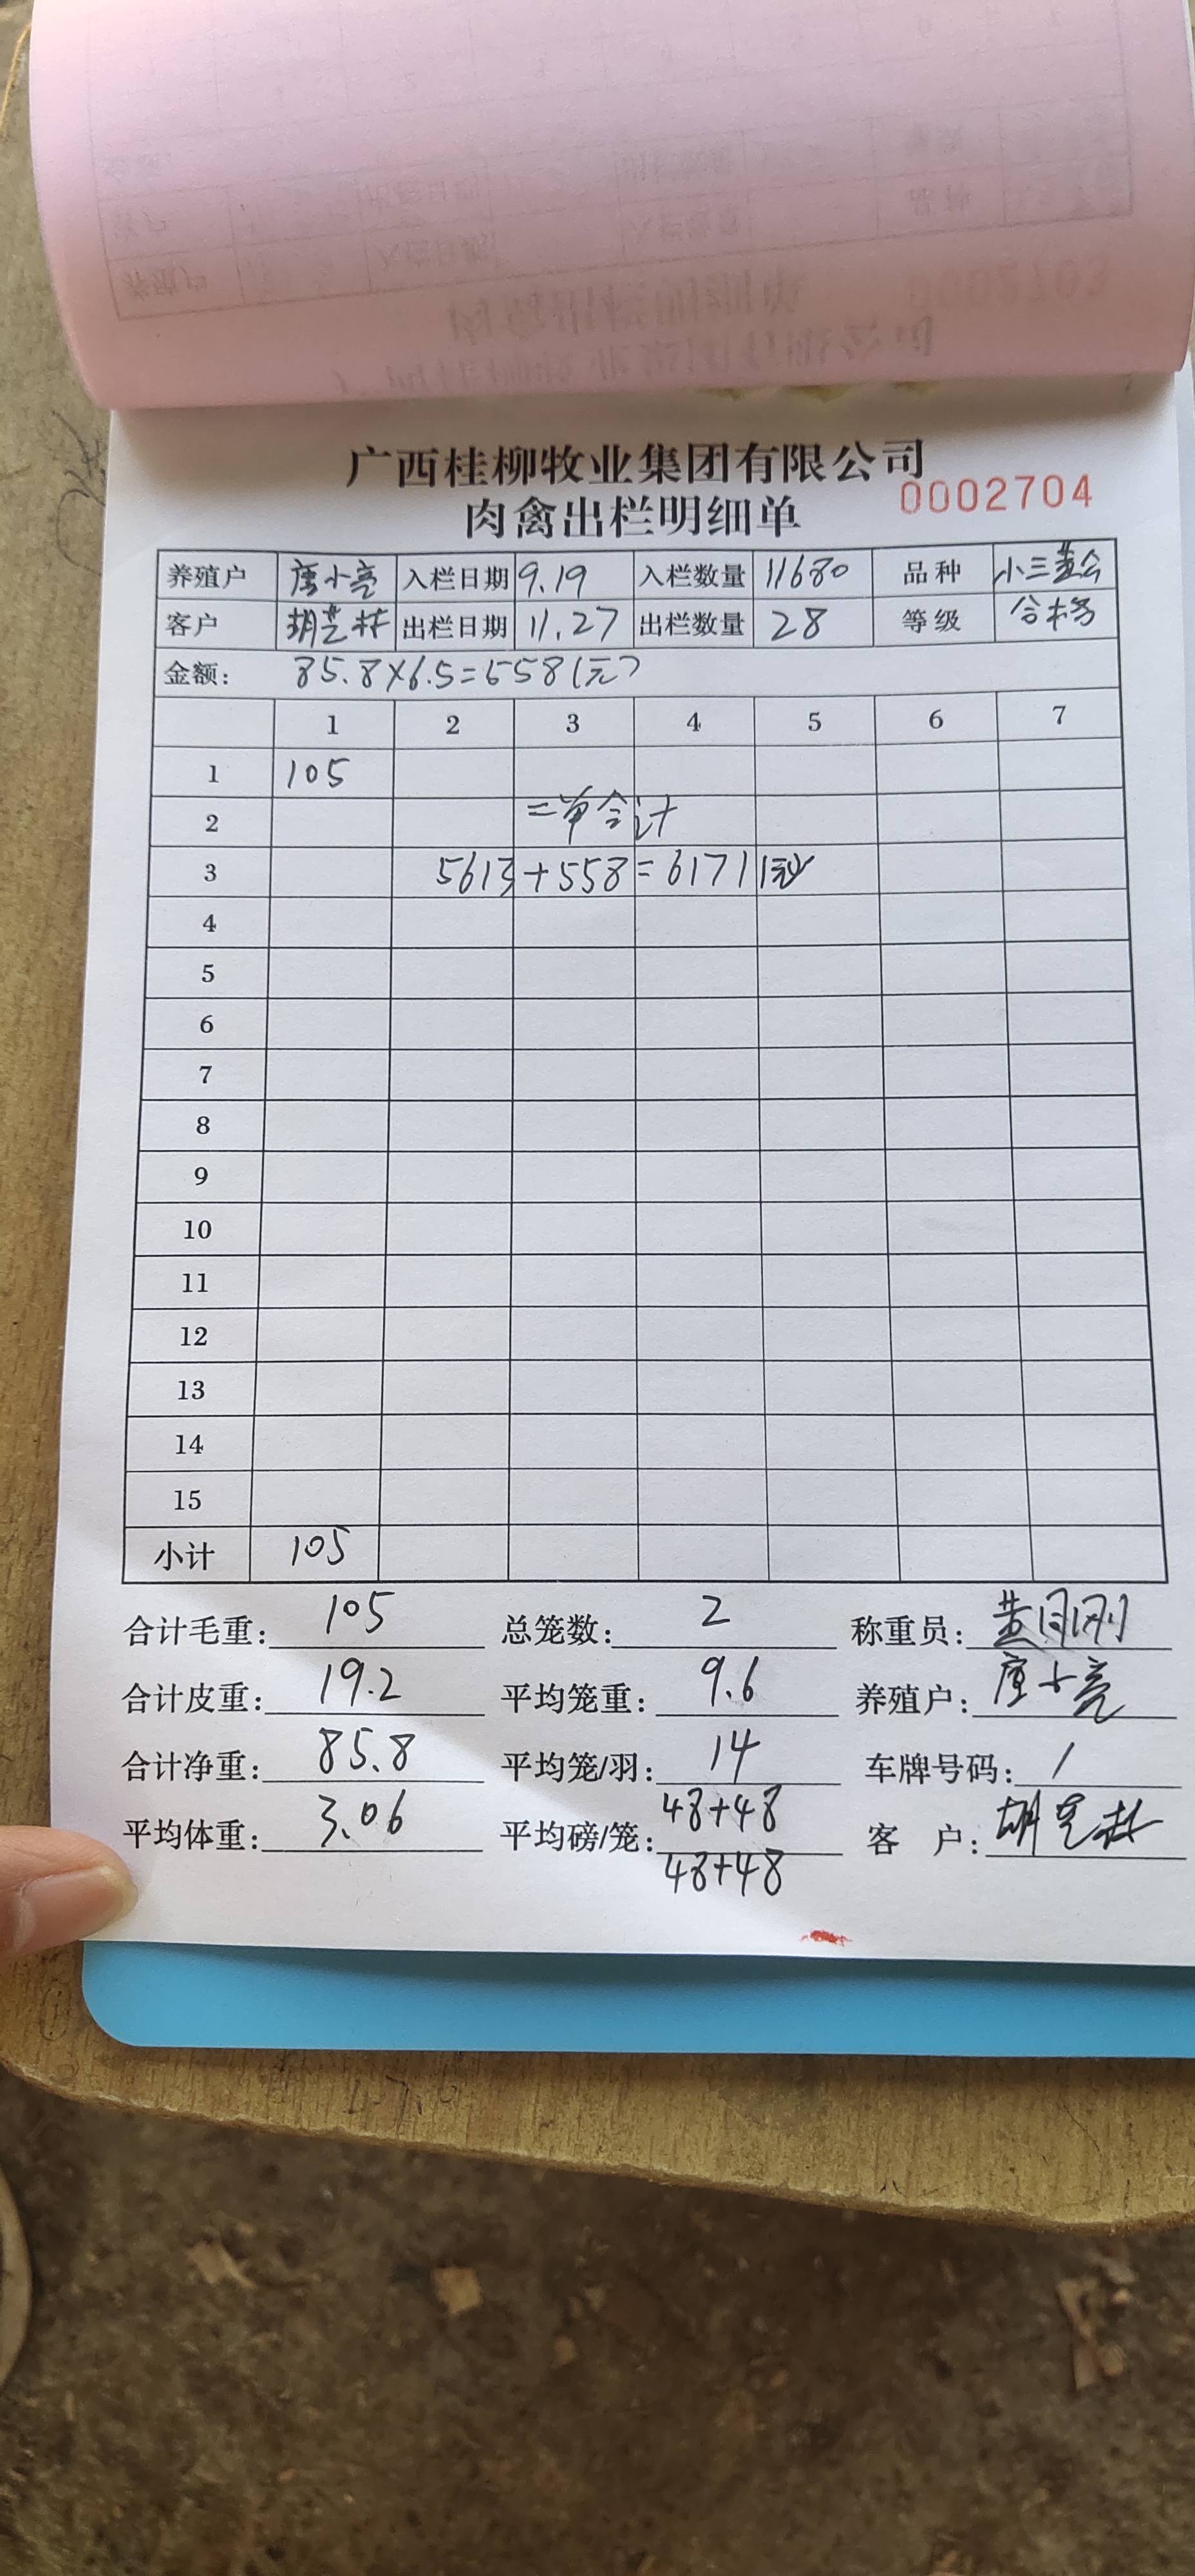 广西桂柳牧业集团有限公司
肉禽出栏明细单 0002704
养殖户 唐小亮 入栏日期 9.19 入栏数量 11680 品种 小三黄公
客户 胡芝林 出栏日期 11.27 出栏数量 28 等级 合格
金额: 85.8×6.5=558(元)
1 2 3 4 5 6 7
1 105
2 二单合计
3 5613+558=6171(元)
4
5
6
7
8
9
10
11
12
13
14
15
小计 105
合计毛重: 105 总笼数: 2 称重员: 黄刚
合计皮重: 19.2 平均笼重: 9.6 养殖户: 唐小亮
合计净重: 85.8 平均笼/羽: 14 车牌号码: /
平均体重: 3.06 平均磅/笼: 48+48 客户: 胡芝林
48+48